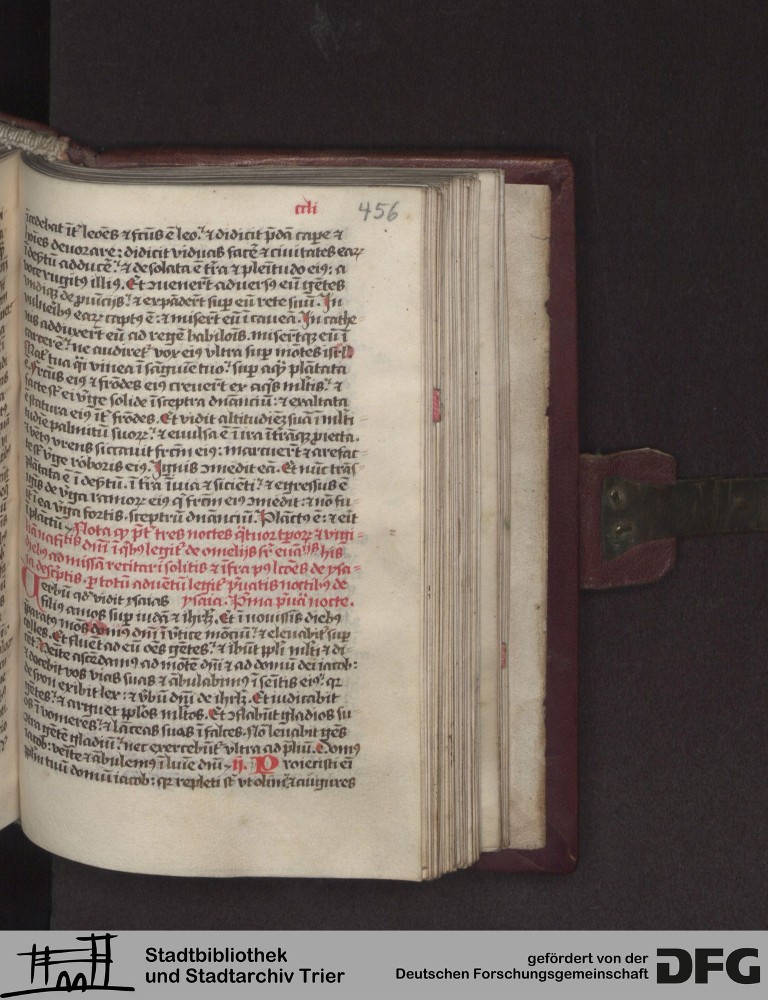 ccli 456
incedebat it̄ leoēs ⁊ fctūs ē leo. ⁊ didicit p̄dā cape ⁊
hoīes deuorare: didicit viduas facē ⁊ ciuitates eaꝝ
ī deẜtū adducē. ⁊ desolata ē tr̄a ⁊ plenitudo eiꝰ: a
voce rugitꝰ illiꝰ. Et ↄuenert̄ aduersꝰ eū gētes
vndiqꝫ de ꝓuīcijs. ⁊ expādert̄ suꝑ eū rete suū. In
vulneribꝰ eaꝝ captꝰ ē: ⁊ misert̄ eū ī caueā. In cathe
nis adduxert̄ eū ad regē babilōis. misert̄qꝫ eū ī
carcerē. ne audiret̄ vox eiꝰ vltra suꝑ mōtes isrl̄
Mat̄ tua q̄i vinea ī sāguīe tuo. suꝑ aq̄ꝫ plātata
ē. Frctūs eiꝰ ⁊ frōdes eiꝰ creuert̄ ex aq̄s ml̄tis. ⁊
facte st̄ ei v̄ge solide ī sceptra dn̄anciū: ⁊ exaltata
ē statura eiꝰ it̄ frōdes. Et vidit altitudiēꝫ suā ī ml̄ti
tudīe palmitū suoꝝ. ⁊ euulsa ē ī ira ī tr̄āqꝫ ꝓiecta.
⁊ vētꝰ vrens siccauit frctm̄ eiꝰ: marcuert̄ ⁊ arefac
te st̄ v̄ge roboris eiꝰ. Ignis ↄmedit eā. Et nūc trās
plātata ē ī deẜtū. ī tr̄a īuia ⁊ sicienti. ⁊ egressus ē
ignis de v̄ga ramoꝝ eiꝰ q̄ frctm̄ eiꝰ ↄmedit: ⁊ nō fu
it ī ea v̄ga fortis. sceptrū dn̄anciū. Plāctꝰ ē: ⁊ eit
ī plāctū Nota ꝙ p̄t tres noctes q̄tuor tp̄oꝝ ⁊ vigi
liā natītis dn̄i ī qb̄ꝰ legit̄ de omelijs sr̄ euā his
diebꝰ ad missā recitari solitis ⁊ īfra pꝰ lcōēs de ysa
ia desc̄ptis. ꝑ totū aduētū legit̄ p̄uatis noctibꝰ de
Uerbū qd̄ vidit ysaias ysaia. Pma p̄uā nocte.
filiꝰ amos suꝑ iudā ⁊ ihrl̄ꝫ. Et ī nouissīs diebꝰ
p̄paratꝰ mōs domꝰ dn̄i ī v̄tice mōciū. ⁊ eleuabit̄ suꝑ
colles. Et fluēt ad eū oēs gētes. ⁊ ibūt ppl̄i ml̄ti ⁊ di
cēt. Veīte ascēdamꝰ ad mōtē dn̄i ⁊ ad domū dei iacob:
⁊ docebit vos vias suas ⁊ ābulabimꝰ ī sēītis eiꝰ. qꝛ
de syon exibit lex: ⁊ v̄bū dn̄i de ihrl̄ꝫ. Et iudicabit
gētes. ⁊ arguet ppl̄os ml̄tos. Et ↄflabūt gladios su
os ī vomeres. ⁊ lāceas suas ī falces. Nō leuabit gēs
ↄtra gētē gladiū. nec exercebūt̄ vltra ad p̄liū. Domꝰ
iacob: veīte ⁊ ābulemꝰ ī luīe dn̄i. ij. Proiecisti ei
ppl̄m tuū domū iacob: qꝛ repleti st̄ vt olim. ⁊ augures
Stadtbibliothek
und Stadtarchiv Trier
gefördert von der
Deutschen Forschungsgemeinschaft
DFG